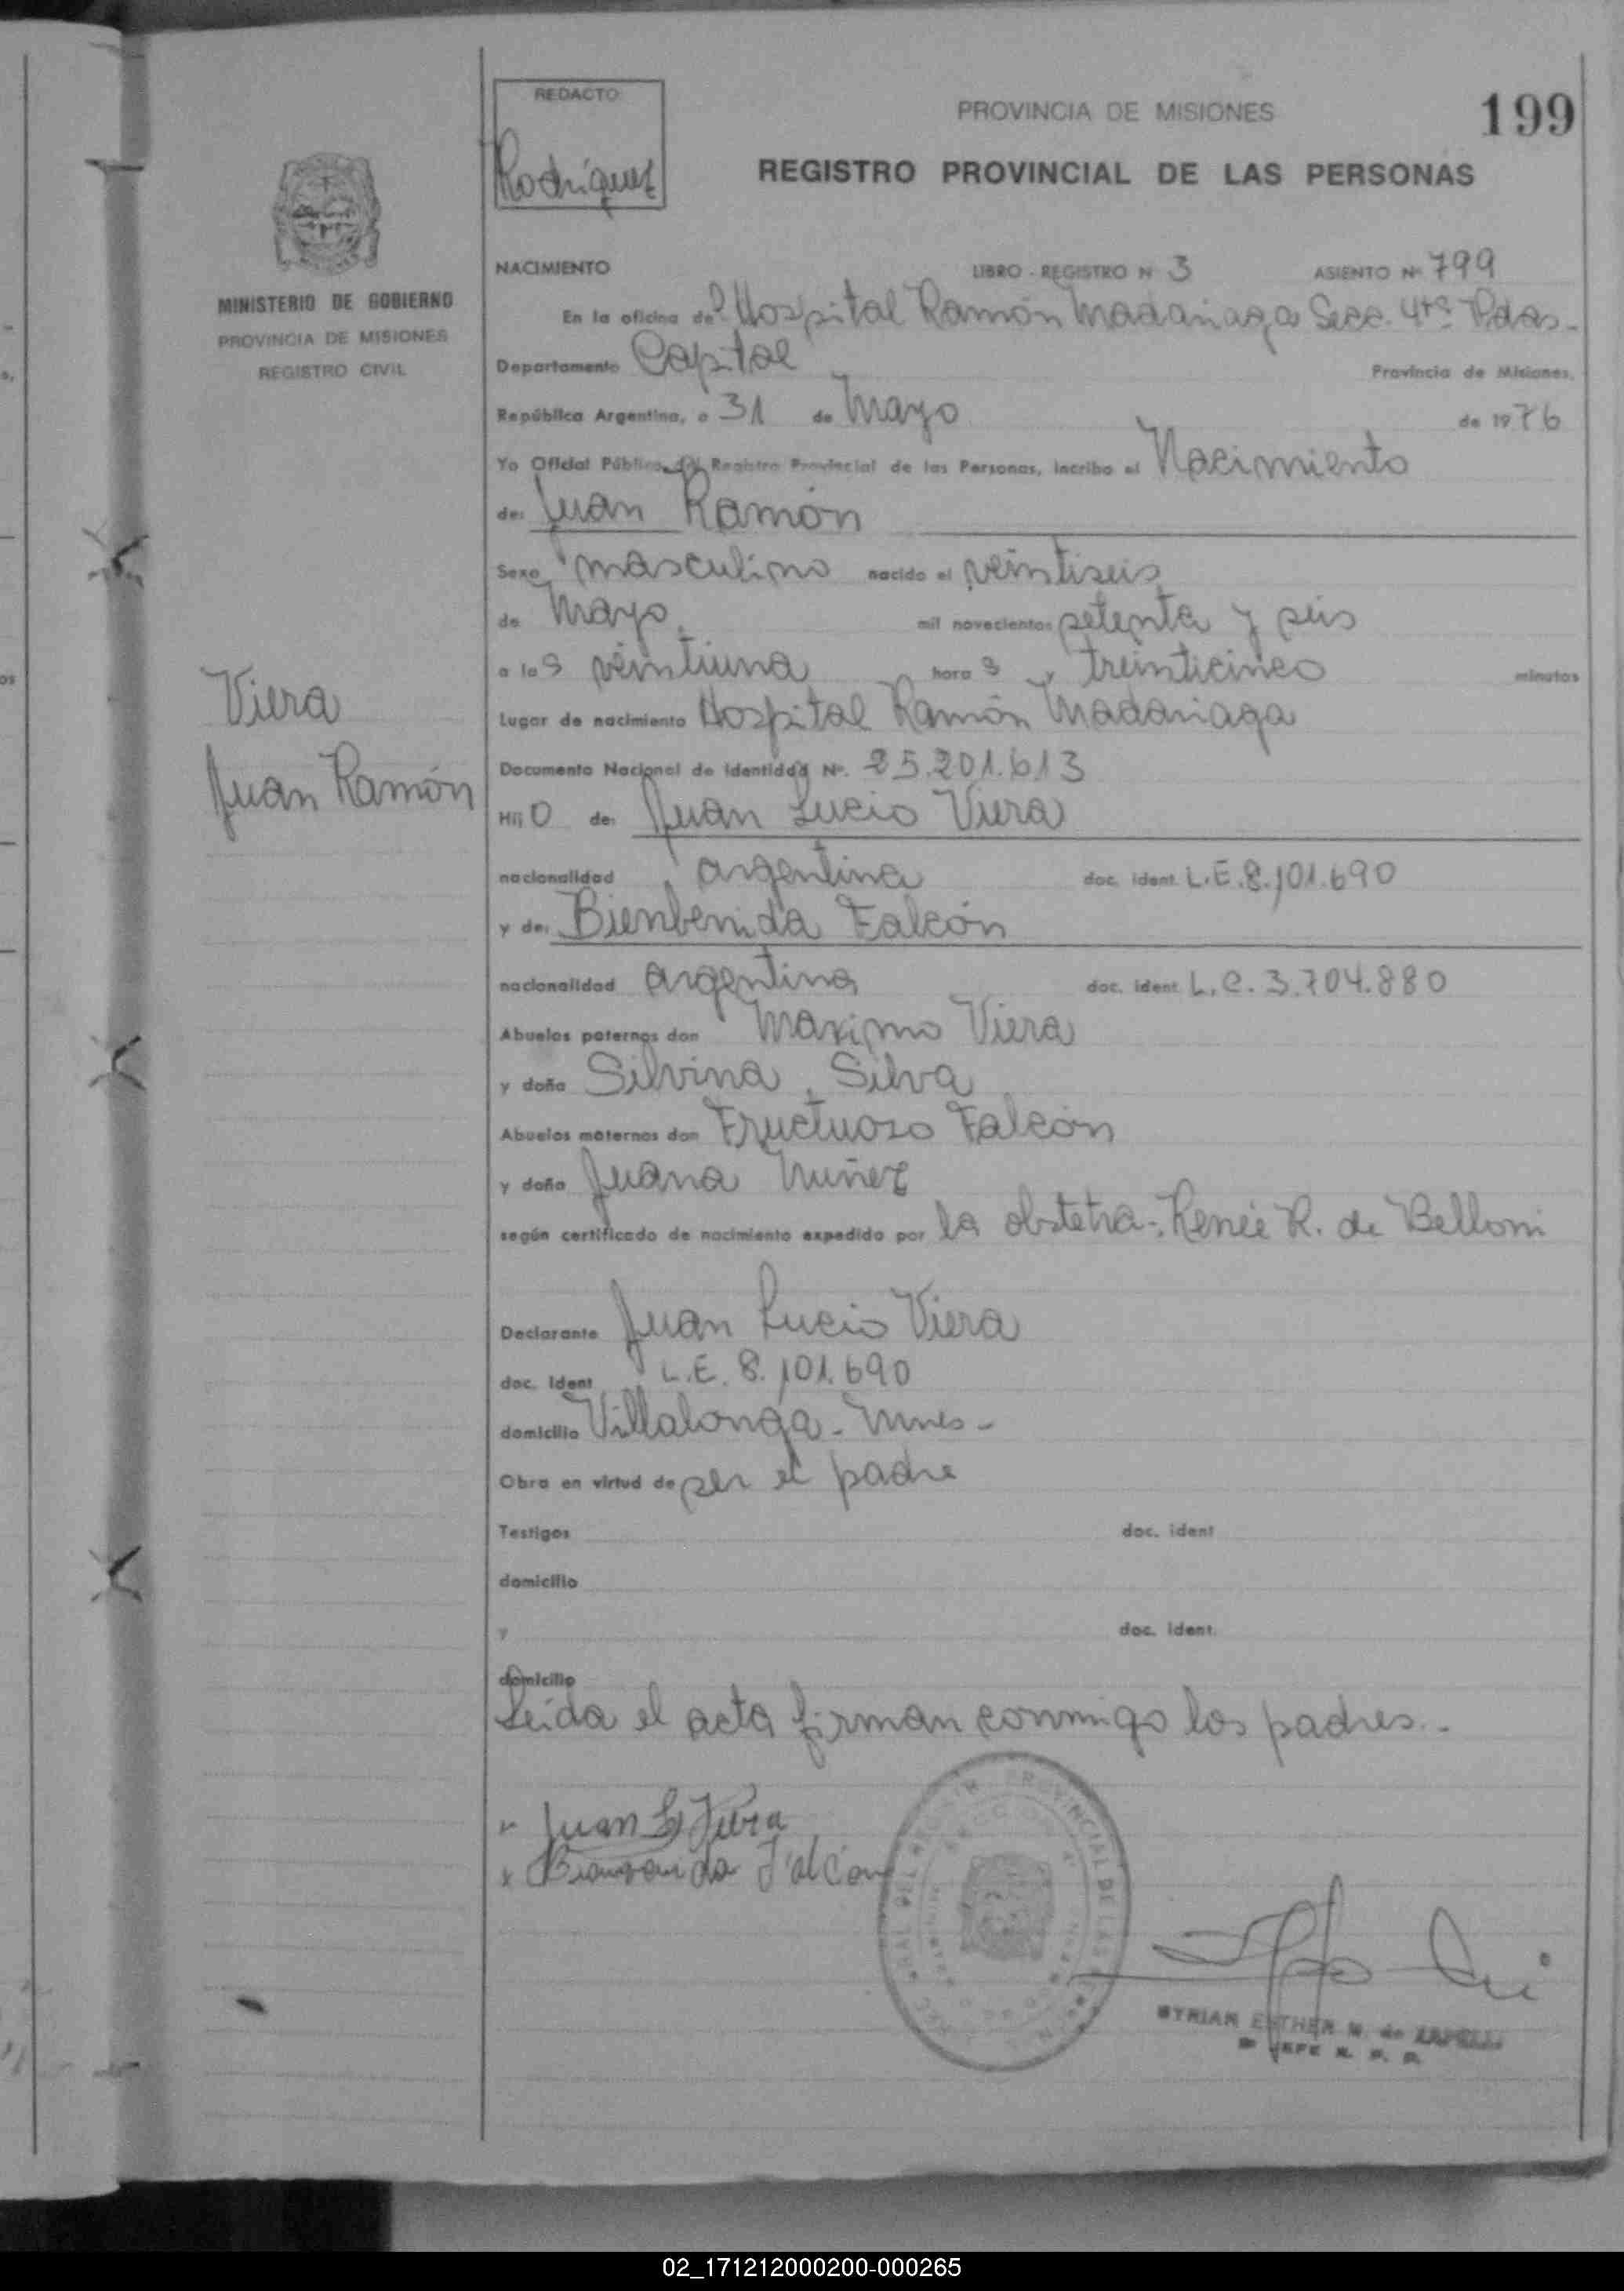 REDACTO
Rodríguez
PROVINCIA DE MISIONES
199
REGISTRO PROVINCIAL DE LAS PERSONAS
MINISTERIO DE GOBIERNO
PROVINCIA DE MISIONES
REGISTRO CIVIL
NACIMIENTO LIBRO - REGISTRO N 3 ASIENTO Nº 799
En la oficina del Hospital Ramón Madariaga Secc. 4ta Pdas.-
Departamento Capital Provincia de Misiones,
República Argentina, a 31 de Mayo de 1976
Yo Oficial Público del Registro Provincial de las Personas, incribo el Nacimiento
de: Juan Ramón
Sexo masculino nacido el veintiseis
de Mayo mil novecientos setenta y seis
a las veintiuna horas y treinticinco minutos
Viera
Juan Ramón
Lugar de nacimiento Hospital Ramón Madariaga
Documento Nacional de Identidad Nº. 25.201.613
Hijo de: Juan Lucio Viera
nacionalidad argentina doc. ident. L.E. 8.101.690
y de: Bienbenida Falcón
nacionalidad argentina doc. ident. L.C. 3.704.880
Abuelos paternos don Maximo Viera
y doña Silvina Silva
Abuelos maternos don Fructuoso Falcón
y doña Juana Nuñez
según certificado de nacimiento expedido por la obstetra-. Renée R. de Belloni
Declarante Juan Lucio Viera
doc. Ident L.E. 8.101.690
domicilio Villalonga - Mnes -
Obra en virtud de ser el padre
Testigos doc. ident
domicilio
y doc. ident.
domicilio
Leída el acta firman conmigo los padres.-
x Juan L Viera
x Falcon
PROVINCIAL DE LAS
MYRIAN ESTHER N. de ZAPELLI
JEFE R. P. P.
02_171212000200-000265